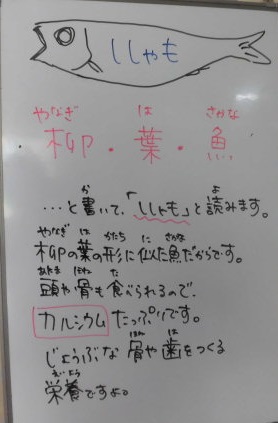 ししゃも
やなぎ は さかな
柳・葉・魚
か よ
…と書いて、「ししゃも」と読みます。
やなぎ は かたち に さかな
柳の葉の形に似た魚だからです。
あたま ほね た
頭や骨も食べられるので、
カルシウムたっぷりです。
ほね は
じょうぶな骨や歯をつくる
えいよう
栄養ですよ。